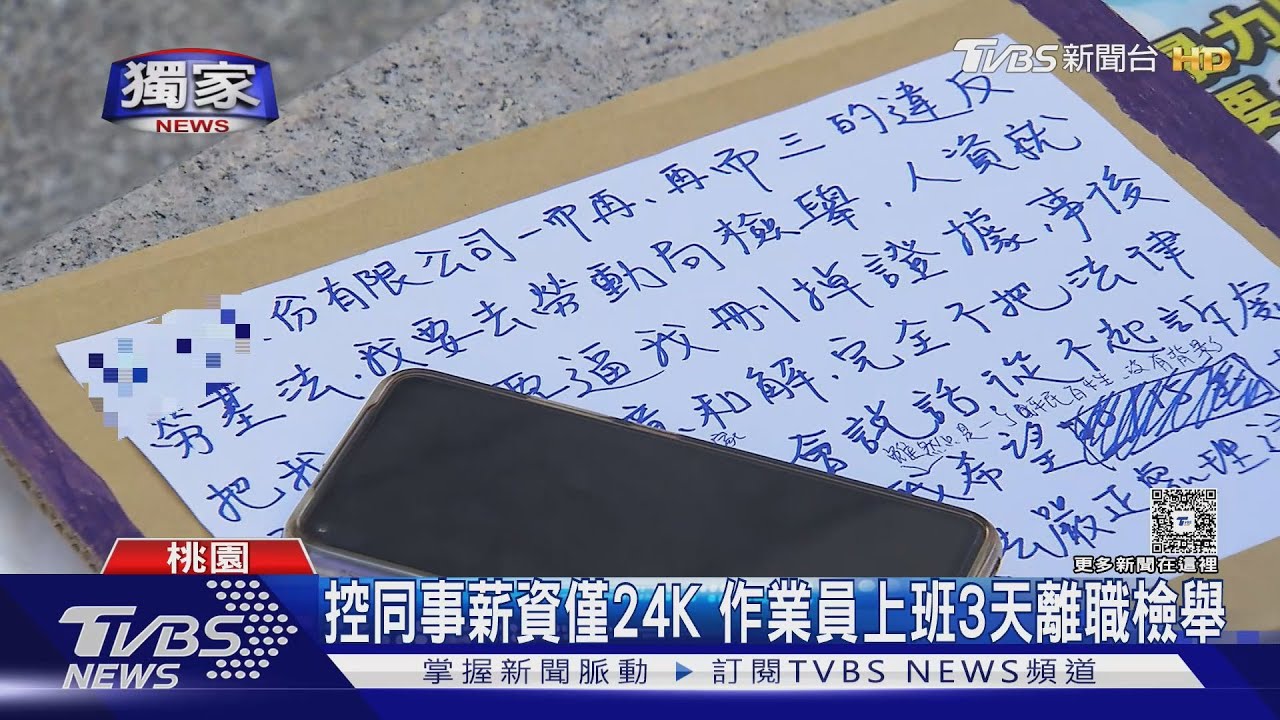 獨家
NEWS
TVBS新聞台HD
份有限公司一而再、再而三的違反
勞基法、我要去勞動局檢舉,人資就
把我
要逼我刪掉證據,事後
和解,完全不把法律
會說話從不起訴處
雖然只是一個平民百姓 沒有背景
我希望
去嚴正處理這
更多新聞在這裡
桃園
控同事薪資僅24K 作業員上班3天離職檢舉
TVBS
NEWS
掌握新聞脈動 ▶ 訂閱TVBS NEWS頻道